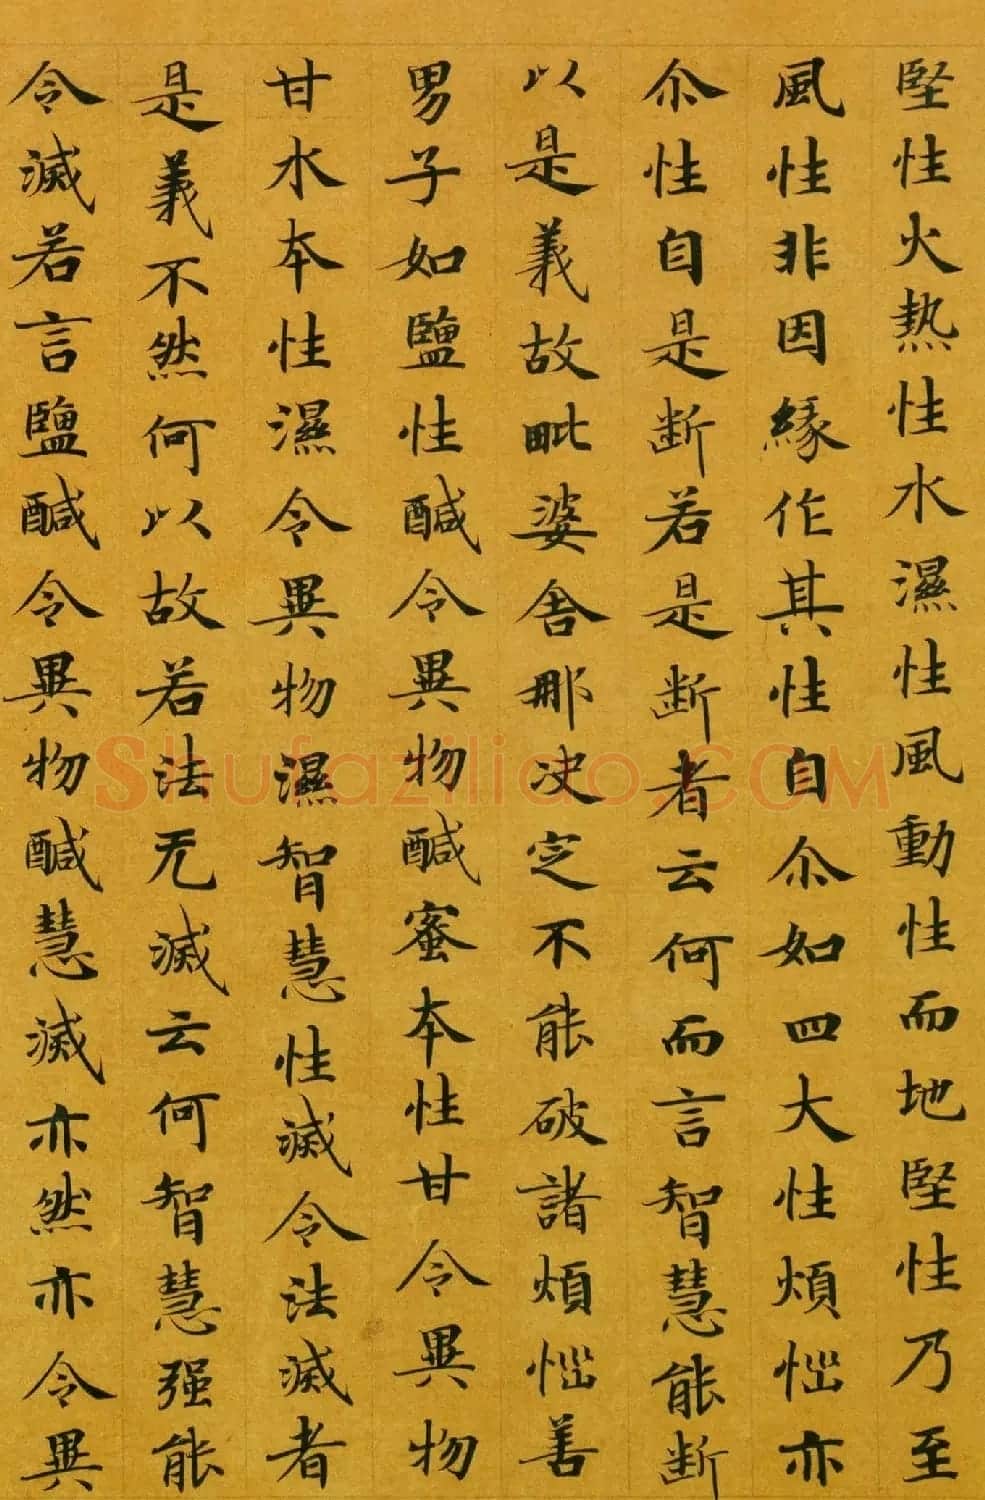 堅性火热性水濕性風動性而地堅性乃至
風性非因緣作其性自尒如四大性煩惱亦
尒性自是断若是断者云何而言智慧能断
以是義故毗婆舍那决定不能破諸煩惱善
男子如鹽性醎令異物醎蜜本性甘令異物
甘水本性濕令異物濕智慧性滅令法滅者
是義不然何以故若法无滅云何智慧强能
令滅若言鹽醎令異物醎慧滅亦然亦令異
Shufaziliao.COM